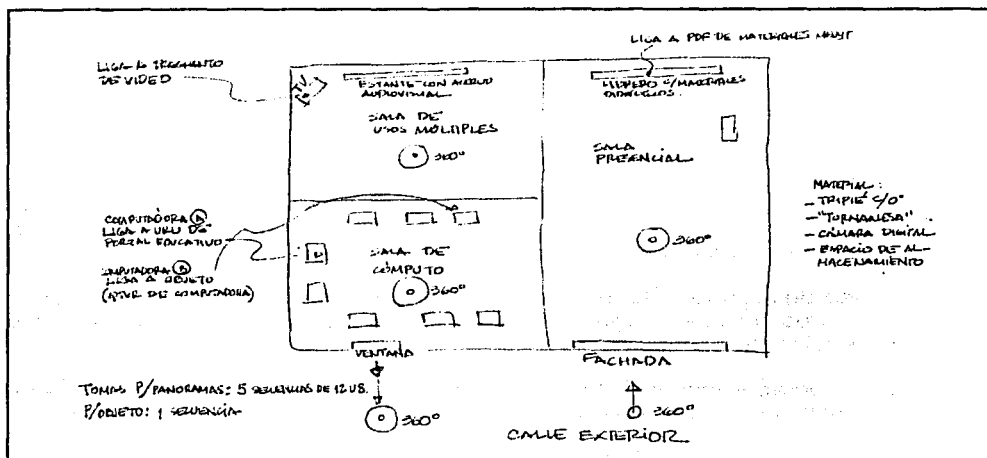 LIGA A FRAGMENTO
DE VIDEO
LIGA A PDF DE MATERIALES
TV
ESTANTE CON
AUDIOVISUAL
LIBRERO C/MATERIALES
DIDÁCTICOS
SALA DE
USOS MÚLTIPLES
360°
SALA
PRESENCIAL
MATERIAL:
- TRIPIÉ C/
- "TORNAMESA"
- CÁMARA DIGITAL
- ESPACIO DE AL-
MACENAMIENTO
COMPUTADORA A
LIGA A URL DE
PORTAL EDUCATIVO
COMPUTADORA
LIGA A OBJETO
(DE COMPUTADORA)
SALA DE
CÓMPUTO
360°
360°
VENTANA
FACHADA
TOMAS P/PANORAMAS: 5 SECUENCIAS DE 12
P/OBJETO: 1 SECUENCIA
360°
360°
CALLE EXTERIOR